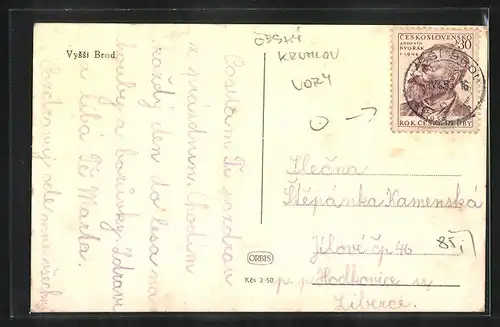 Vyšší Brod
ČESKÝ
KRUMLOV
VORY
ČESKOSLOVENSKO
ANTONÍN
DVOŘÁK
30
ROK ČESKÉ HUDBY
VYŠŠÍ BROD
Posílám Ti pozdrav
z prázdnin. Chodím
každý den do lesa na
houby a borůvky. Zdraví
a líbá Tě Marta.
Slečna
Štěpánka Kamenská
Jílové čp 46
p. p. Hodkovice u
Liberce.
85,-
ORBIS
Kčs 2·50